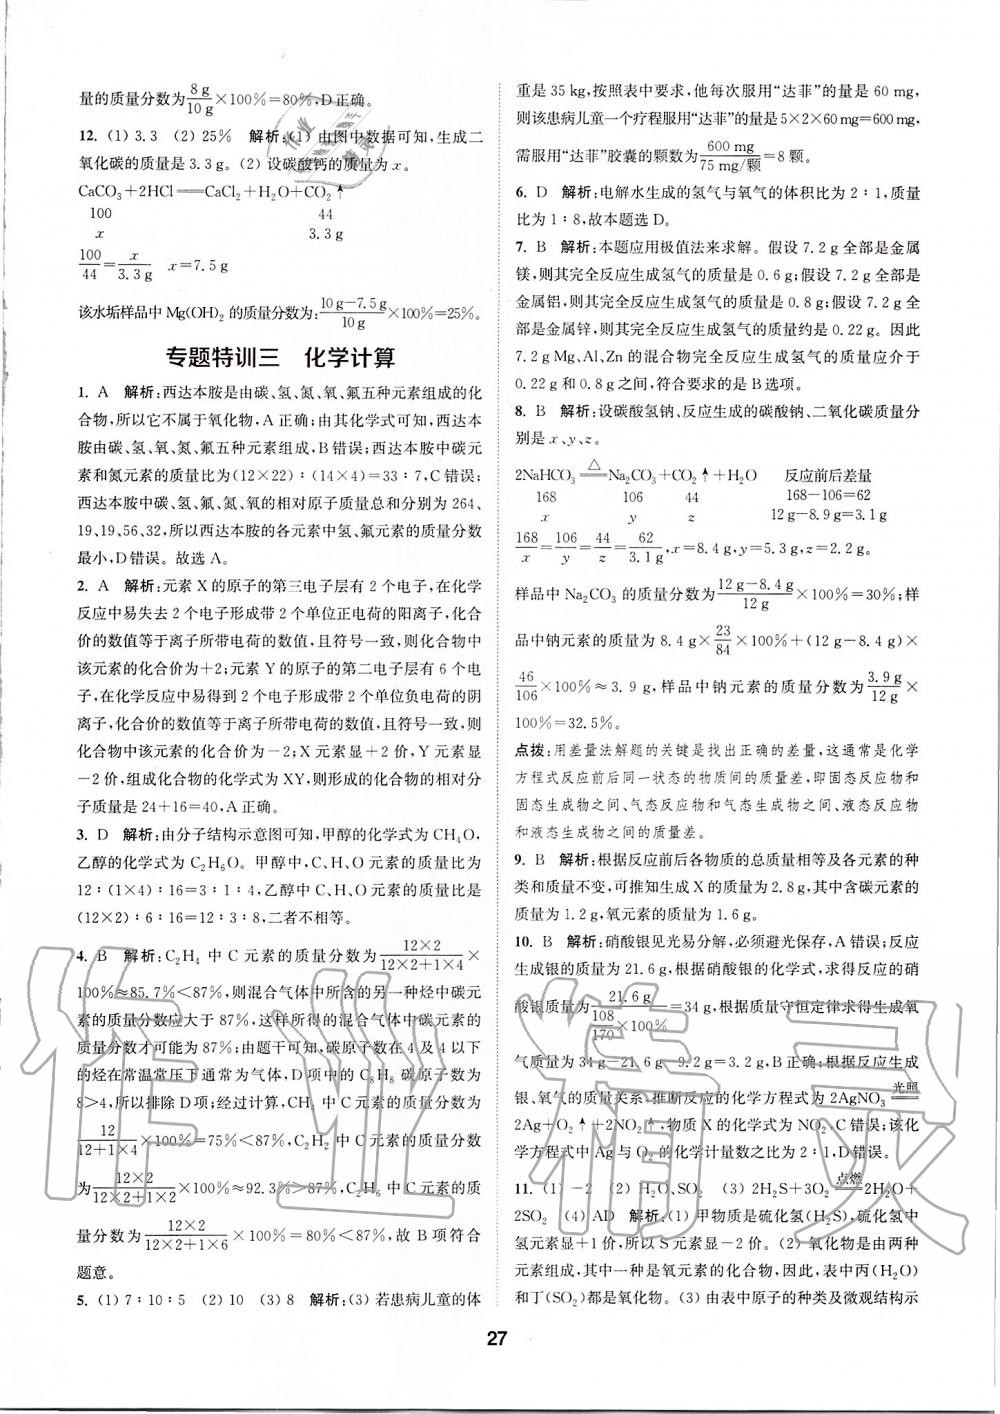 量的质量分数为8 g/10 g×100%=80%,D正确。
12. (1) 3.3 (2) 25% 解析:(1) 由图中数据可知,生成二
氧化碳的质量是 3.3 g。(2) 设碳酸钙的质量为 x。
CaCO₃+2HCl══CaCl₂+H₂O+CO₂↑
100 44
x 3.3 g
100/44=x/3.3 g x=7.5 g
该水垢样品中 Mg(OH)₂ 的质量分数为:10 g-7.5 g/10 g×100%=25%。
专题特训三 化学计算
1. A 解析:西达本胺是由碳、氢、氮、氧、氟五种元素组成的化
合物,所以它不属于氧化物,A正确;由其化学式可知,西达本
胺由碳、氢、氧、氮、氟五种元素组成,B错误;西达本胺中碳元
素和氮元素的质量比为(12×22)∶(14×4)=33∶7,C错误;
西达本胺中碳、氢、氟、氮、氧的相对原子质量总和分别为 264、
19、19、56、32,所以西达本胺的各元素中氢、氟元素的质量分数
最小,D错误。故选 A。
2. A 解析:元素 X 的原子的第三电子层有 2 个电子,在化学
反应中易失去 2 个电子形成带 2 个单位正电荷的阳离子,化合
价的数值等于离子所带电荷的数值,且符号一致,则化合物中
该元素的化合价为+2;元素 Y 的原子的第二电子层有 6 个电
子,在化学反应中易得到 2 个电子形成带 2 个单位负电荷的阴
离子,化合价的数值等于离子所带电荷的数值,且符号一致,则
化合物中该元素的化合价为-2;X元素显+2价,Y元素显
-2价,组成化合物的化学式为 XY,则形成的化合物的相对分
子质量是 24+16=40,A正确。
3. D 解析:由分子结构示意图可知,甲醇的化学式为 CH₄O,
乙醇的化学式为 C₂H₆O。甲醇中,C、H、O 元素的质量比为
12∶(1×4)∶16=3∶1∶4,乙醇中C、H、O元素的质量比是
(12×2)∶6∶16=12∶3∶8,二者不相等。
4. B 解析:C₂H₄ 中 C 元素的质量分数为12×2/12×2+1×4×
100%≈85.7%<87%,则混合气体中所含的另一种烃中碳元
素的质量分数应大于 87%,这样所得的混合气体中碳元素的
质量分数才可能为 87%;由题干可知,碳原子数在 4 及 4 以下
的烃在常温常压下通常为气体,D 项中的 C₈H₈ 碳原子数为
8>4,所以排除 D 项;经过计算,CH₄ 中 C 元素的质量分数为
12/12+1×4×100%=75%<87%,C₂H₂ 中 C 元素的质量分数
为12×2/12×2+1×2×100%≈92.3%>87%,C₂H₆ 中 C 元素的质
量分数为12×2/12×2+1×6×100%=80%<87%,故 B 项符合
题意。
5. (1) 7∶10∶5 (2) 10 (3) 8 解析:(3) 若患病儿童的体
重是 35 kg,按照表中要求,他每次服用“达菲”的量是 60 mg,
则该患病儿童一个疗程服用“达菲”的量是 5×2×60 mg=600 mg,
需服用“达菲”胶囊的颗数为600 mg/75 mg/颗=8 颗。
6. D 解析:电解水生成的氢气与氧气的体积比为 2∶1,质量
比为 1∶8,故本题选 D。
7. B 解析:本题应用极值法来求解。假设 7.2 g 全部是金属
镁,则其完全反应生成氢气的质量是 0.6 g;假设 7.2 g 全部是
金属铝,则其完全反应生成氢气的质量是 0.8 g;假设 7.2 g 全
部是金属锌,则其完全反应生成氢气的质量约是 0.22 g。因此
7.2 g Mg、Al、Zn 的混合物完全反应生成氢气的质量应介于
0.22 g 和 0.8 g 之间,符合要求的是 B 选项。
8. B 解析:设碳酸氢钠、反应生成的碳酸钠、二氧化碳质量分
别是 x、y、z。
2NaHCO₃ ══△ Na₂CO₃+CO₂↑+H₂O 反应前后差量
168 106 44 168-106=62
x y z 12 g-8.9 g=3.1 g
168/x=106/y=44/z=62/3.1 g,x=8.4 g,y=5.3 g,z=2.2 g。
样品中 Na₂CO₃ 的质量分数为12 g-8.4 g/12 g×100%=30%;样
品中钠元素的质量为 8.4 g×23/84×100%+(12 g-8.4 g)×
46/106×100%≈3.9 g,样品中钠元素的质量分数为3.9 g/12 g×
100%=32.5%。
点拨:用差量法解题的关键是找出正确的差量,这通常是化学
方程式反应前后同一状态的物质间的质量差,即固态反应物和
固态生成物之间、气态反应物和气态生成物之间、液态反应物
和液态生成物之间的质量差。
9. B 解析:根据反应前后各物质的总质量相等及各元素的种
类和质量不变,可推知生成 X 的质量为 2.8 g,其中含碳元素的
质量为 1.2 g,氧元素的质量为 1.6 g。
10. B 解析:硝酸银见光易分解,必须避光保存,A错误;反应
生成银的质量为 21.6 g,根据硝酸银的化学式,求得反应的硝
酸银质量为21.6 g/108/170×100%=34 g,根据质量守恒定律求得生成氧
气质量为 34 g-21.6 g-9.2 g=3.2 g,B正确;根据反应生成
银、氧气的质量关系,推断反应的化学方程式为 2AgNO₃ 光照══
2Ag+O₂↑+2NO₂↑,物质 X 的化学式为 NO₂,C错误;该化
学方程式中 Ag 与 O₂ 的化学计量数之比为 2∶1,D错误。
11. (1) -2 (2) H₂O、SO₂ (3) 2H₂S+3O₂ 点燃══ 2H₂O+
2SO₂ (4) AD 解析:(1) 甲物质是硫化氢(H₂S),硫化氢中
氢元素显+1价,所以S元素显-2价。(2) 氧化物是由两种
元素组成,其中一种是氧元素的化合物,因此,表中丙(H₂O)
和丁(SO₂)都是氧化物。(3) 由表中原子的种类及微观结构示
27
作业精灵